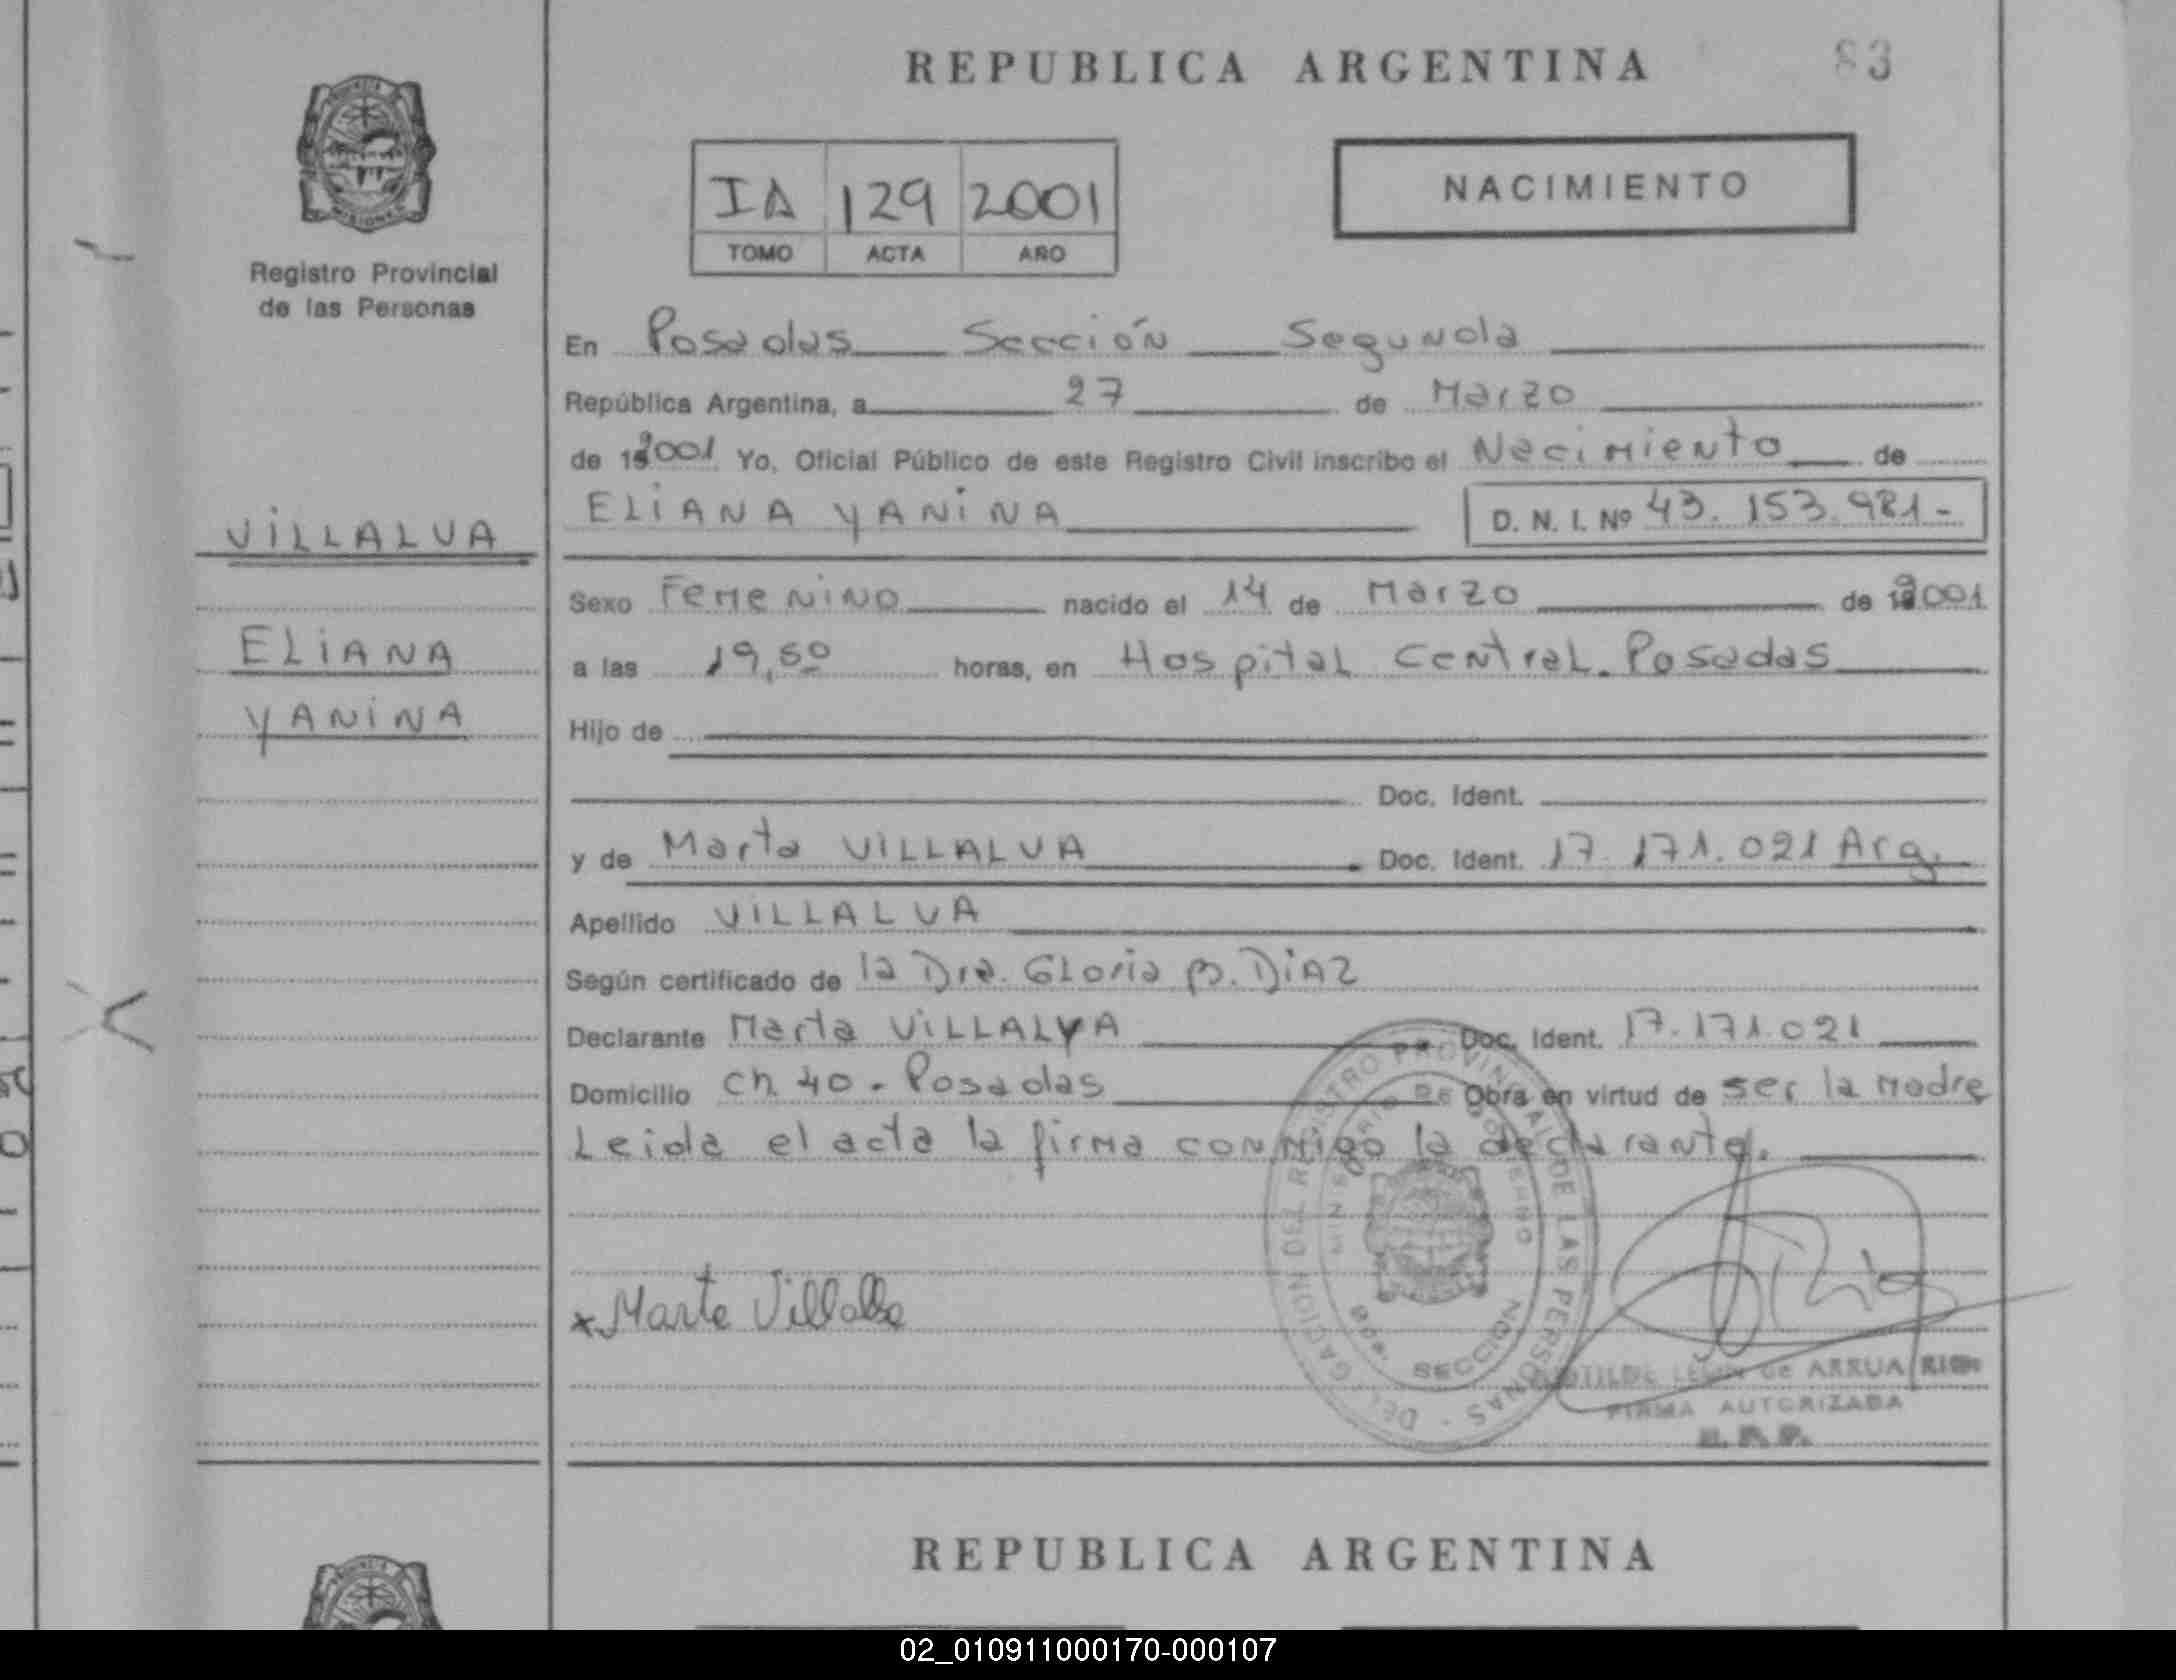 REPUBLICA ARGENTINA 83
IA 129 2001
TOMO ACTA AÑO
NACIMIENTO
Registro Provincial
de las Personas
VILLALVA
ELIANA
YANINA
En Posadas Sección Segunda
República Argentina, a 27 de Marzo
de 2001 Yo, Oficial Público de este Registro Civil inscribo el Nacimiento de
ELIANA YANINA D. N. I. Nº 43.153.981-
Sexo Femenino nacido el 14 de Marzo de 2001
a las 19,50 horas, en Hospital Central. Posadas
Hijo de
Doc. Ident.
y de Marta VILLALVA Doc. Ident. 17.171.021 Arg.
Apellido VILLALVA
Según certificado de la Dra. Gloria B. DIAZ
Declarante Marta VILLALVA Doc. Ident. 17.171.021
Domicilio Ch. 40. Posadas Obra en virtud de ser la Madre
Leida el acta la firma conmigo la declarante.
x Marta Villalba
DELEGACION DEL REGISTRO PROVINCIAL DE LAS PERSONAS
MINISTERIO DE GOBIERNO
SECCION
de ARRUA
FIRMA AUTORIZADA
REPUBLICA ARGENTINA
02_010911000170-000107